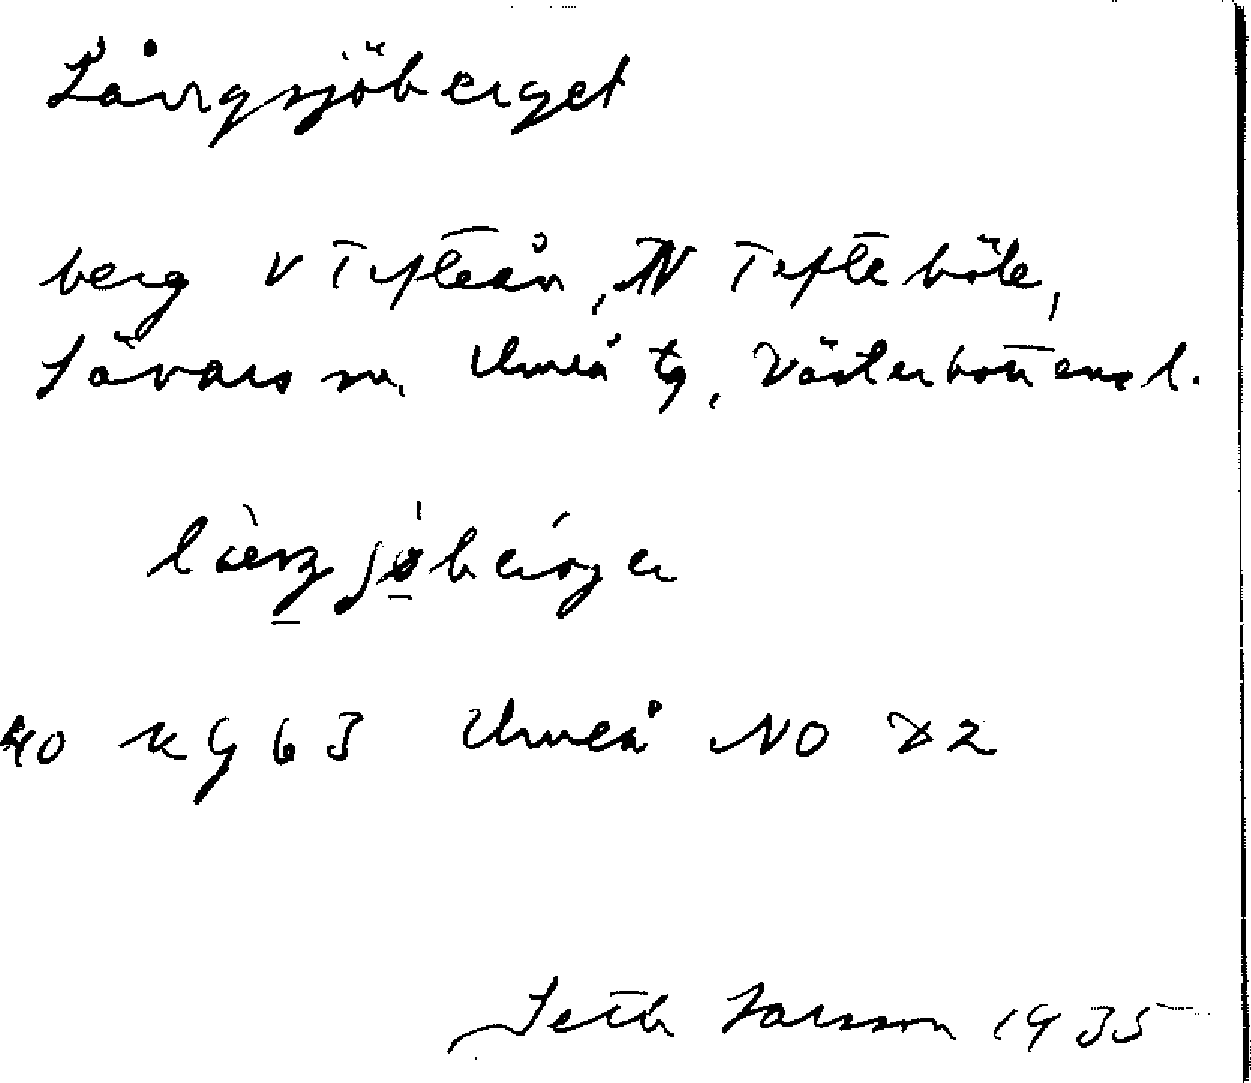 Långsjöberget
berg V Tefteån, N Tefteböle,
Sävars sn. Umeå tg, Västerbottens l.
40 Umeå NO
Seth Larsson 1935